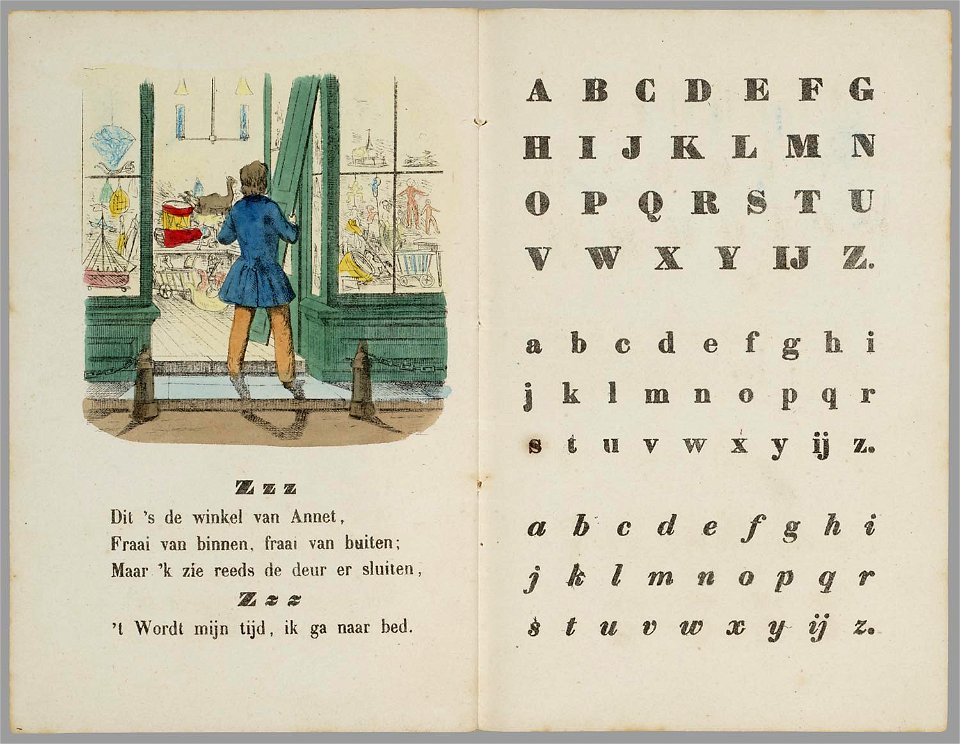 Z z z
Dit 's de winkel van Annet,
Fraai van binnen, fraai van buiten;
Maar 'k zie reeds de deur er sluiten,
Z z z
't Wordt mijn tijd, ik ga naar bed.
A B C D E F G
H I J K L M N
O P Q R S T U
V W X Y IJ Z.
a b c d e f g h i
j k l m n o p q r
s t u v w x y ij z.
a b c d e f g h i
j k l m n o p q r
s t u v w x y ij z.